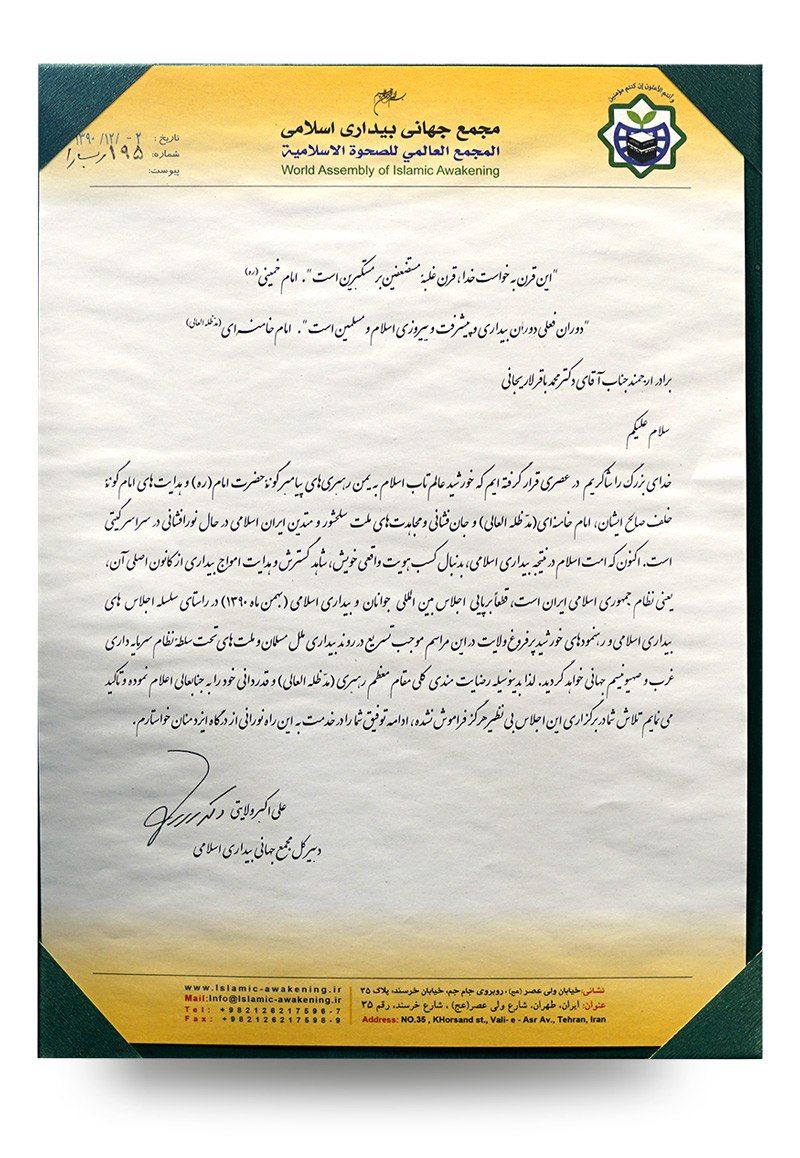 وأنتم الأعلون إن كنتم مؤمنین
مجمع جهانی بیداری اسلامی
المجمع العالمي للصحوة الاسلامية
World Assembly of Islamic Awakening
تاریخ: ۱۳۹۰/۱۲/۰۲
شماره: ۱۹۵
پیوست:
"این قرن به خواست خدا، قرن غلبهٔ مستضعفین بر مستکبرین است". امام خمینی (ره)
"دوران فعلی دوران بیداری و پیشرفت و پیروزی اسلام و مسلمین است". امام خامنه‌ای (مدّ ظله العالی)
برادر ارجمند جناب آقای دکتر محمد باقر لاریجانی
سلام علیکم
خدای بزرگ را شاکریم در عصری قرار گرفته ایم که خورشید عالم تاب اسلام به یمن رهبری‌های پیامبرگونهٔ حضرت امام (ره) و هدایت‌های امام‌گونهٔ
خلف صالح ایشان، امام خامنه‌ای (مدّ ظله العالی) و جان‌فشانی و مجاهدت‌های ملت سلحشور و متدین ایران اسلامی در حال نورافشانی در سراسر گیتی
است. اکنون که امت اسلام در نتیجه بیداری اسلامی، بدنبال کسب هویت واقعی خویش، شاهد گسترش و هدایت امواج بیداری از کانون اصلی آن،
یعنی نظام جمهوری اسلامی ایران است، قطعاً برپایی اجلاس بین المللی جوانان و بیداری اسلامی (بهمن ماه ۱۳۹۰) در راستای سلسله اجلاس های
بیداری اسلامی و رهنمودهای خورشید پرفروغ ولایت در این مراسم موجب تسریع در روند بیداری ملل مسلمان و ملت‌های تحت سلطه نظام سرمایه داری
غرب و صهیونیسم جهانی خواهد گردید. لذا بدینوسیله رضایت مندی کلی مقام معظم رهبری (مدّ ظله العالی) و قدردانی خود را به جنابعالی اعلام نموده و تأکید
می نمایم تلاش شما در برگزاری این اجلاس بی نظیر هرگز فراموش نشده، ادامه توفیق شما را در خدمت به این راه نورانی از درگاه ایزد منان خواستارم.
علی اکبر ولایتی
دبیر کل مجمع جهانی بیداری اسلامی
نشانی: خیابان ولی عصر (عج)، روبروی جام جم، خیابان خرسند، پلاک ۳۵
عنوان: ایران، طهران، شارع ولی عصر(عج) ، شارع خرسند، رقم ۳۵
Address: NO.35 , KHorsand st., Vali- e - Asr Av., Tehran, Iran
www.Islamic-awakening.ir
Mail:Info@Islamic-awakening.ir
Tel: +982126217596-7
Fax: +982126217598-9